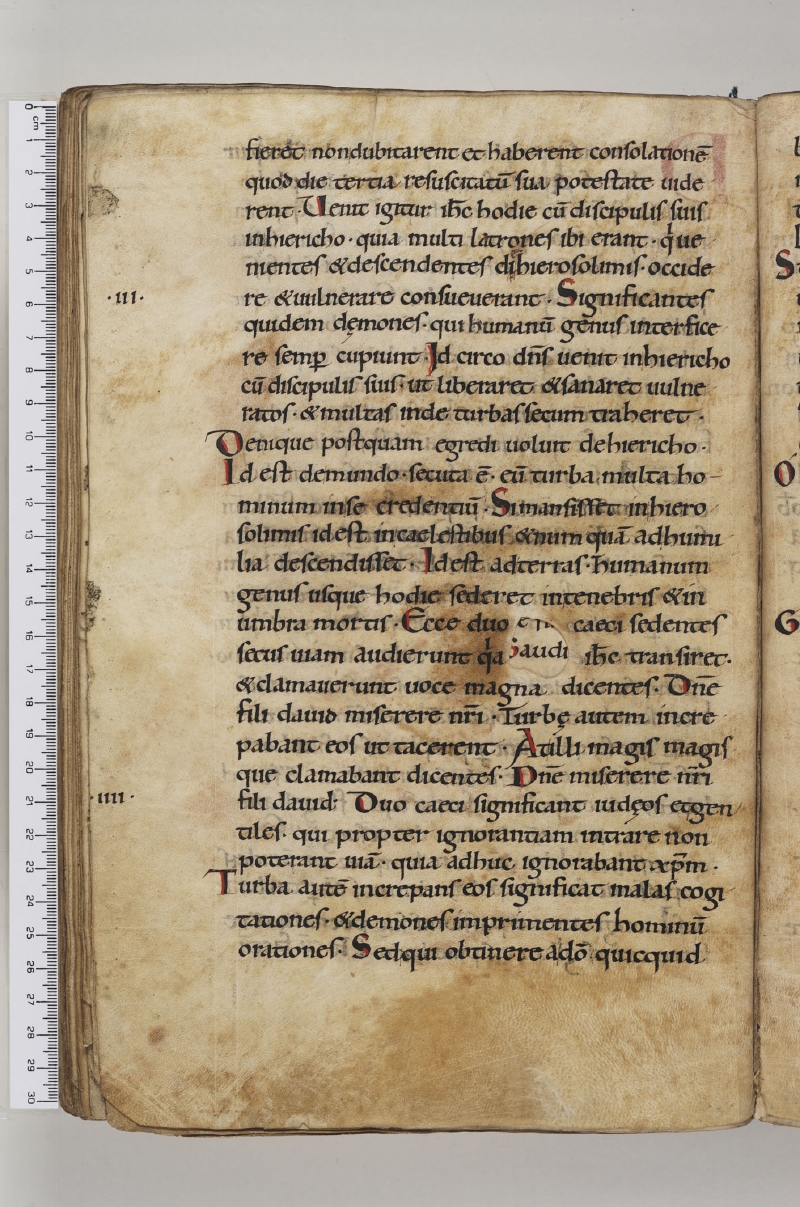 fieret non dubitarent et haberent consolationē
quod die tertia resuscitatū sua potestate uide
rent. Uenit igitur ihc̄ hodie cū discipulis suis
inhiericho· quia multi latrones ibi erant· que
nientes & descendentes dihierosolimis· occide
·III· re & uulnerare consueuerant· Significantes
quidem dęmones· qui humanū genus interfice
re semꝑ cupiunt· Id circo dn̄s uenit inhiericho
cū discipulis suis· ut liberaret & sanaret uulne
ratos· & multas inde turbas secum traheret·
Denique postquam egredi uoluit dehiericho·
Id est demundo· secuta ē· eū turba multa ho
minum inse credentiū· Si mansisset inhiero
solimis id est incaelestibus & num quā adhumi
lia descendisset· Id est adterras· humanum
genus usque hodie sederet intenebris & in
umbra mortis· Ecce duo caeci sedentes
secus uiam audierunt qa ihc̄ transiret·
& clamauerunt uoce magna dicentes· Dn̄e
fili dauid miserere nr̄i· Turbę autem incre
pabant eos ut tacerent· At illi magis magis
que clamabant dicentes· Dn̄e miserere nr̄i
·IIII· fili dauid: Duo caeci significant iudęos et gen
tiles· qui propter ignorantiam intrare non
poterant uiā· quia adhuc ignorabant xp̄m·
Turba autē increpans eos significat malas cogi
tationes· & demones imprimentes hominū
orationes· Sed qui obtinere adō quicquid